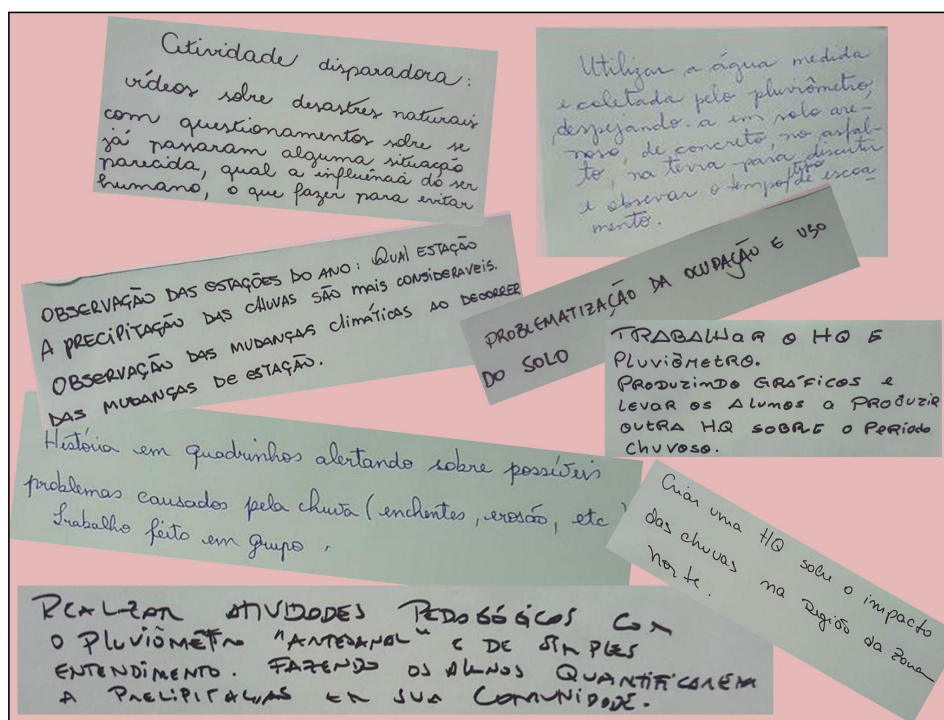 Atividade disparadora:
vídeos sobre desastres naturais
com questionamentos sobre se
já passaram alguma situação
parecida, qual a influência do ser
humano, o que fazer para evitar
Utilizar a água medida
e coletada pelo pluviômetro,
despejando-a em solo are-
noso, de concreto, no asfal-
to, na terra para discutir
e observar o tempo/tipo de escoa-
mento.
OBSERVAÇÃO DAS ESTAÇÕES DO ANO: QUAL ESTAÇÃO
A PRECIPITAÇÃO DAS CHUVAS SÃO MAIS CONSIDERAVEIS.
OBSERVAÇÃO DAS MUDANÇAS climáticas AO DECORRER
DAS MUDANÇAS DE ESTAÇÃO.
PROBLEMATIZAÇÃO DA OCUPAÇÃO E USO
DO SOLO
TRABALHAR O HQ E
PLUVIÔMETRO.
PRODUZINDO GRÁFICOS e
LEVAR OS ALUMOS A PRODUZIR
OUTRA HQ SOBRE O PERÍODO
CHUVOSO.
História em quadrinhos alertando sobre possíveis
problemas causados pela chuva (enchentes, erosão, etc)
Trabalho feito em grupo.
Criar uma HQ sobre o impacto
das chuvas na Região da Zona
Norte.
REALIZAR ATIVIDADES PEDAGÓGICAS COM
O PLUVIÔMETRO "ARTESANAL" E DE SIMPLES
ENTENDIMENTO. FAZENDO OS ALUNOS QUANTIFICAREM
A PRECIPITAÇÃO EM SUA COMUNIDADE.